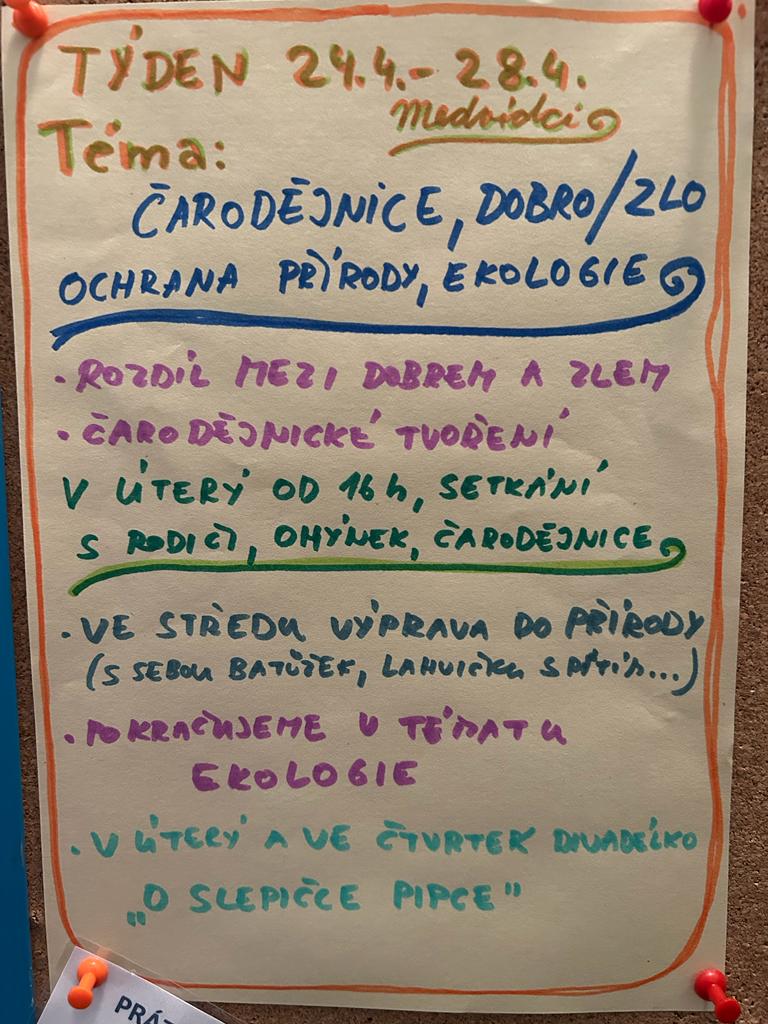 TÝDEN 24.4.-28.4.
Medvídci
Téma:
ČARODĚJNICE, DOBRO/ZLO
OCHRANA PŘÍRODY, EKOLOGIE
• ROZDÍL MEZI DOBREM A ZLEM
• ČARODĚJNICKÉ TVOŘENÍ
V ÚTERÝ OD 16 h, SETKÁNÍ
S RODIČI, OHÝNEK, ČARODĚJNICE
• VE STŘEDU VÝPRAVA DO PŘÍRODY
(S SEBOU BATŮŽEK, LAHVIČKU S PITÍM...)
• POKRAČUJEME V TÉMATU
EKOLOGIE
• V ÚTERÝ A VE ČTVRTEK DIVADÉLKO
„O SLEPIČCE PIPCE"
PRÁZ